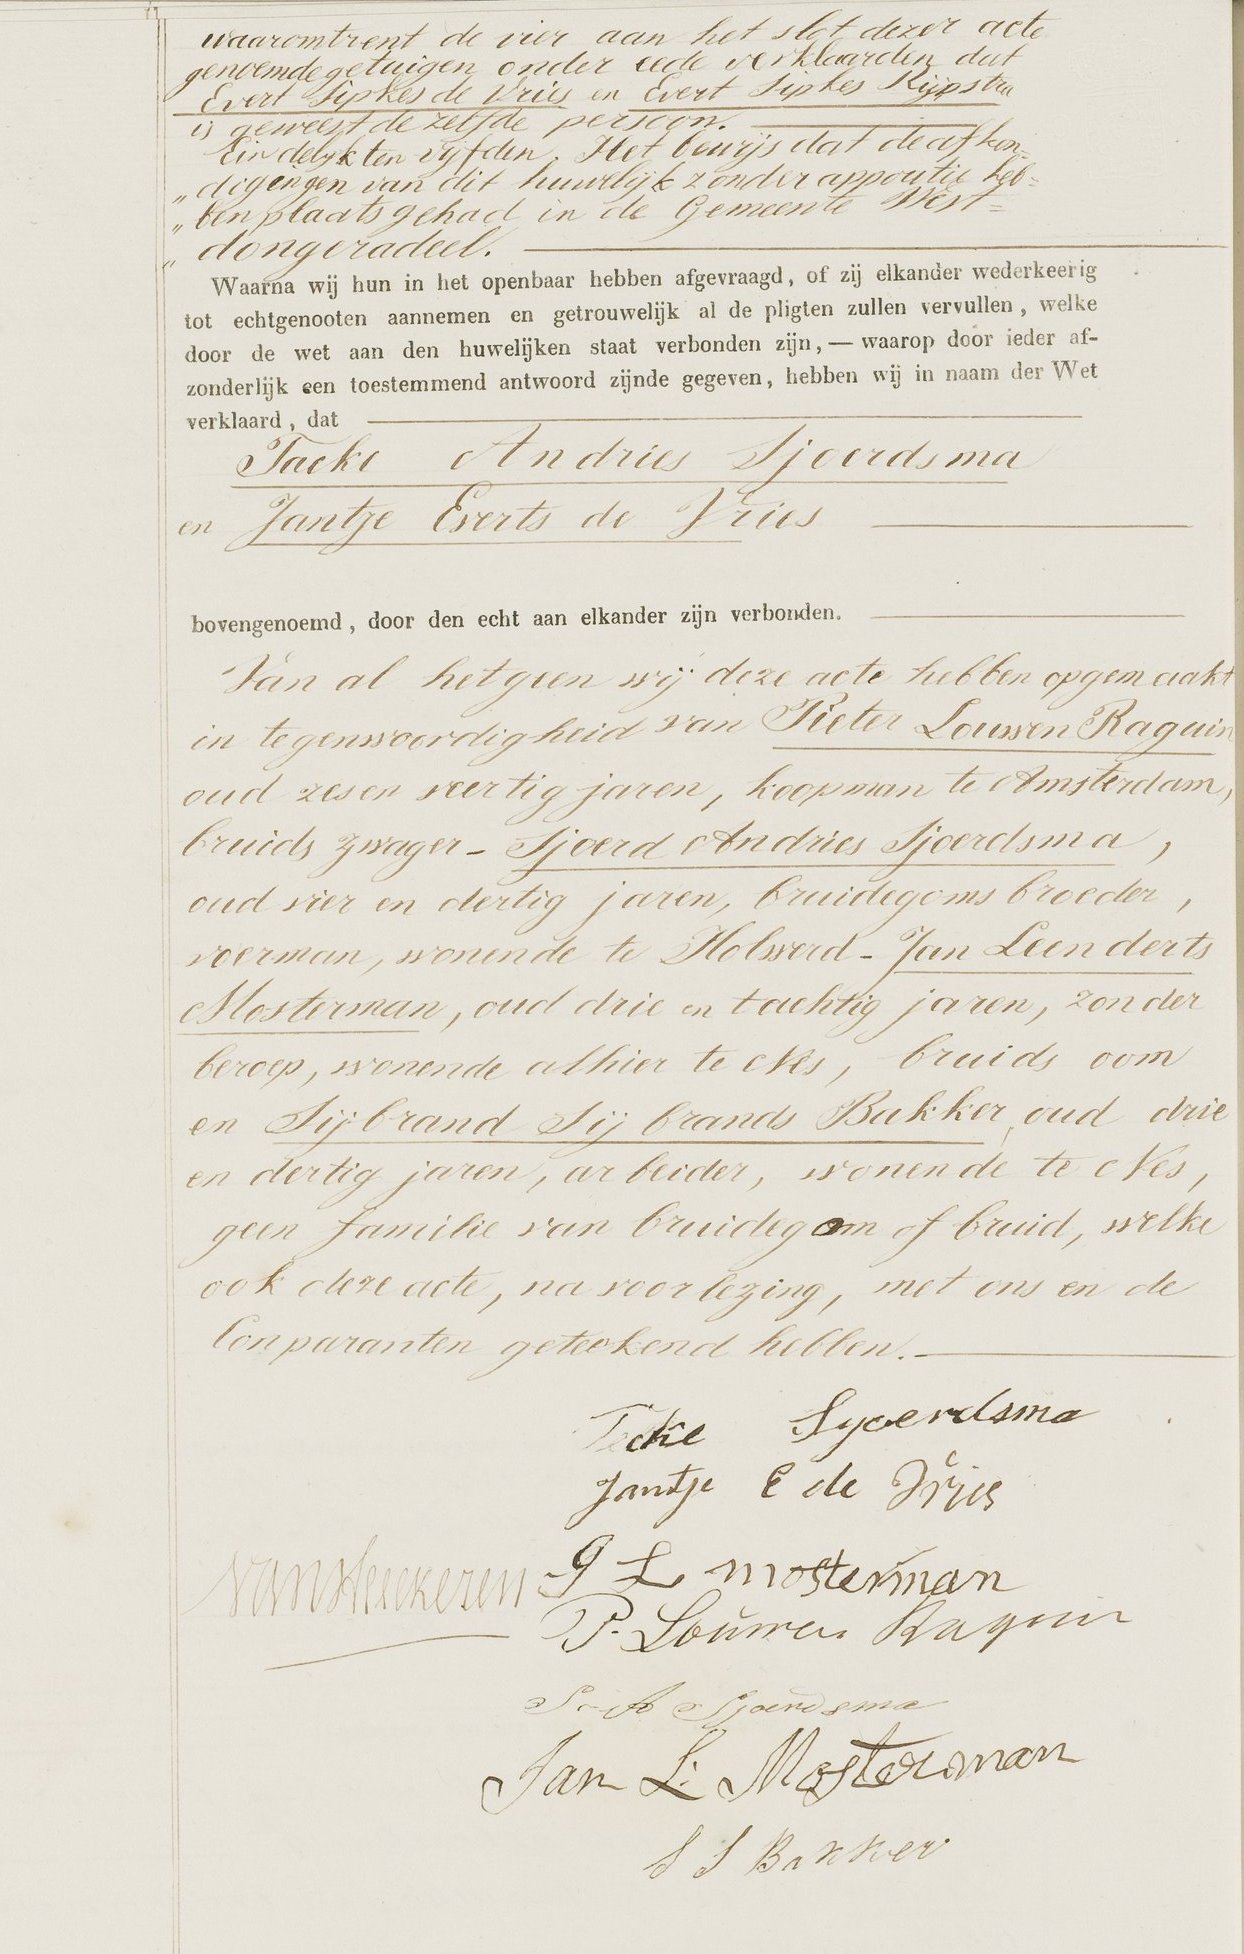 waaromtrent de vier aan het slot dezer acte
genoemde getuigen onder eede verklaarden dat
Evert Sipkes de Vries en Evert Sipkes Rijpstra
is geweest de zelfde persoon.
Eindelijk ten vijfden. Het bewijs dat de afkon=
„ digengen van dit huwelijk zonder appositie heb=
„ ben plaats gehad in de Gemeente West=
„ dongeradeel.
Waarna wij hun in het openbaar hebben afgevraagd, of zij elkander wederkeerig
tot echtgenooten aannemen en getrouwelijk al de pligten zullen vervullen, welke
door de wet aan den huwelijken staat verbonden zijn, — waarop door ieder af-
zonderlijk een toestemmend antwoord zijnde gegeven, hebben wij in naam der Wet
verklaard, dat
Tacke Andries Sjoerdsma
en Jantje Everts de Vries
bovengenoemd, door den echt aan elkander zijn verbonden.
Van al hetgeen wij deze acte hebben opgemaakt
in tegenwoordigheid van Pieter Louwen Raguin
oud zesen veertig jaren, koopman te Amsterdam,
bruids zwager - Sjoerd Andries Sjoerdsma,
oud vier en dertig jaren, bruidegoms broeder,
voerman, wonende te Holwerd - Jan Leenderts
Mosterman, oud drie en tachtig jaren, zonder
beroep, wonende alhier te Nes, bruids oom
en Sijbrand Sijbrands Bakker, oud drie
en dertig jaren, arbeider, wonende te Nes,
geen familie van bruidegom of bruid, welke
ook deze acte, na voorlezing, met ons en de
Conparanten geteekend hebben.
Tecke Syoerdsma
Jantje E de Vries
van Heeckeren G L mosterman
P. Louwen Raguin
S. A Sjoerdsma
Jan L. Mosterman
S S Bakker